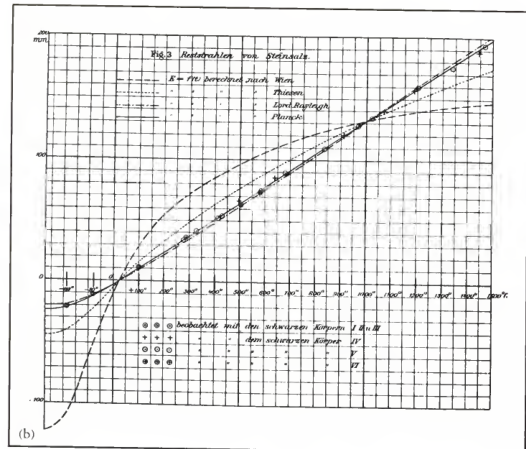 200
mm.
Fig. 3 Reststrahlen von Steinsalz.
E = f(t) berechnet nach Wien
" " " Thiesen
" " " Lord Rayleigh
" " " Planck
100
0
+100° 200° 300° 400° 500° 600° 700° 800° 900° 1000° 1100° 1200° 1300° 1400° 1500° C.
beobachtet mit den schwarzen Körpern I II u III
" " dem schwarzen Körper IV
" " " " V
" " " " VI
-100
(b)